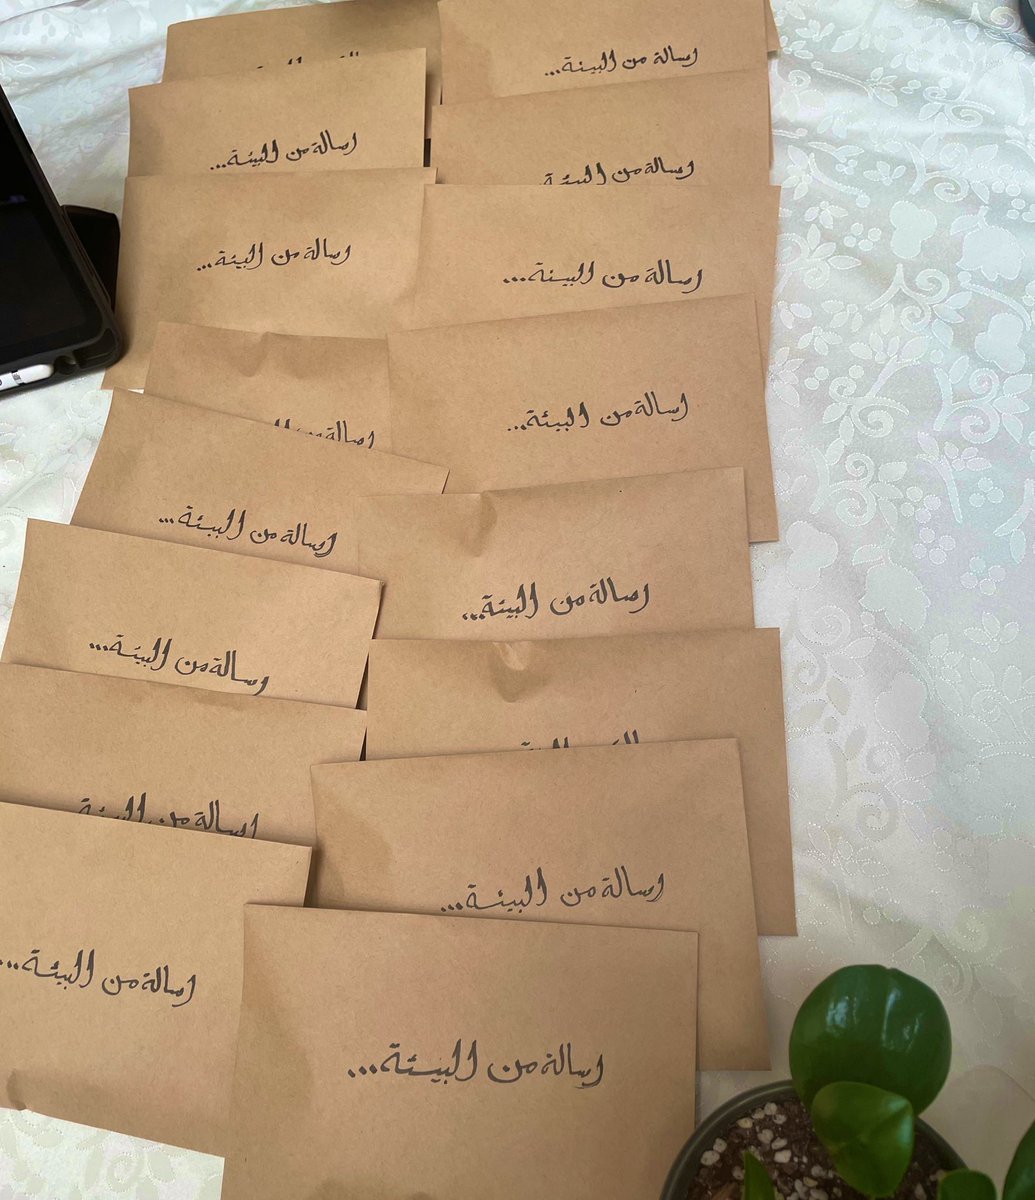 رسالة من البيئة...
رسالة من البيئة...
رسالة من البيئة
رسالة من البيئة...
رسالة من البيئة...
رسالة من البيئة...
رسالة من
رسالة من البيئة...
رسالة من البيئة...
رسالة من البيئة...
رسالة من البيئة
رسالة من البيئة...
رسالة من البيئة...
رسالة من البيئة...